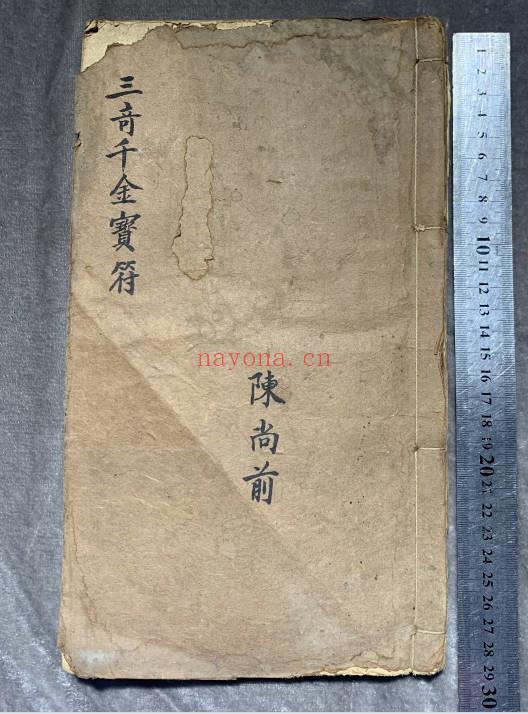 三奇千金寳符
陳尚前
nayona.cn
1
2
3
4
5
6
7
8
9
10
11
12
13
14
15
16
17
18
19
20
21
22
23
24
25
26
27
28
29
30